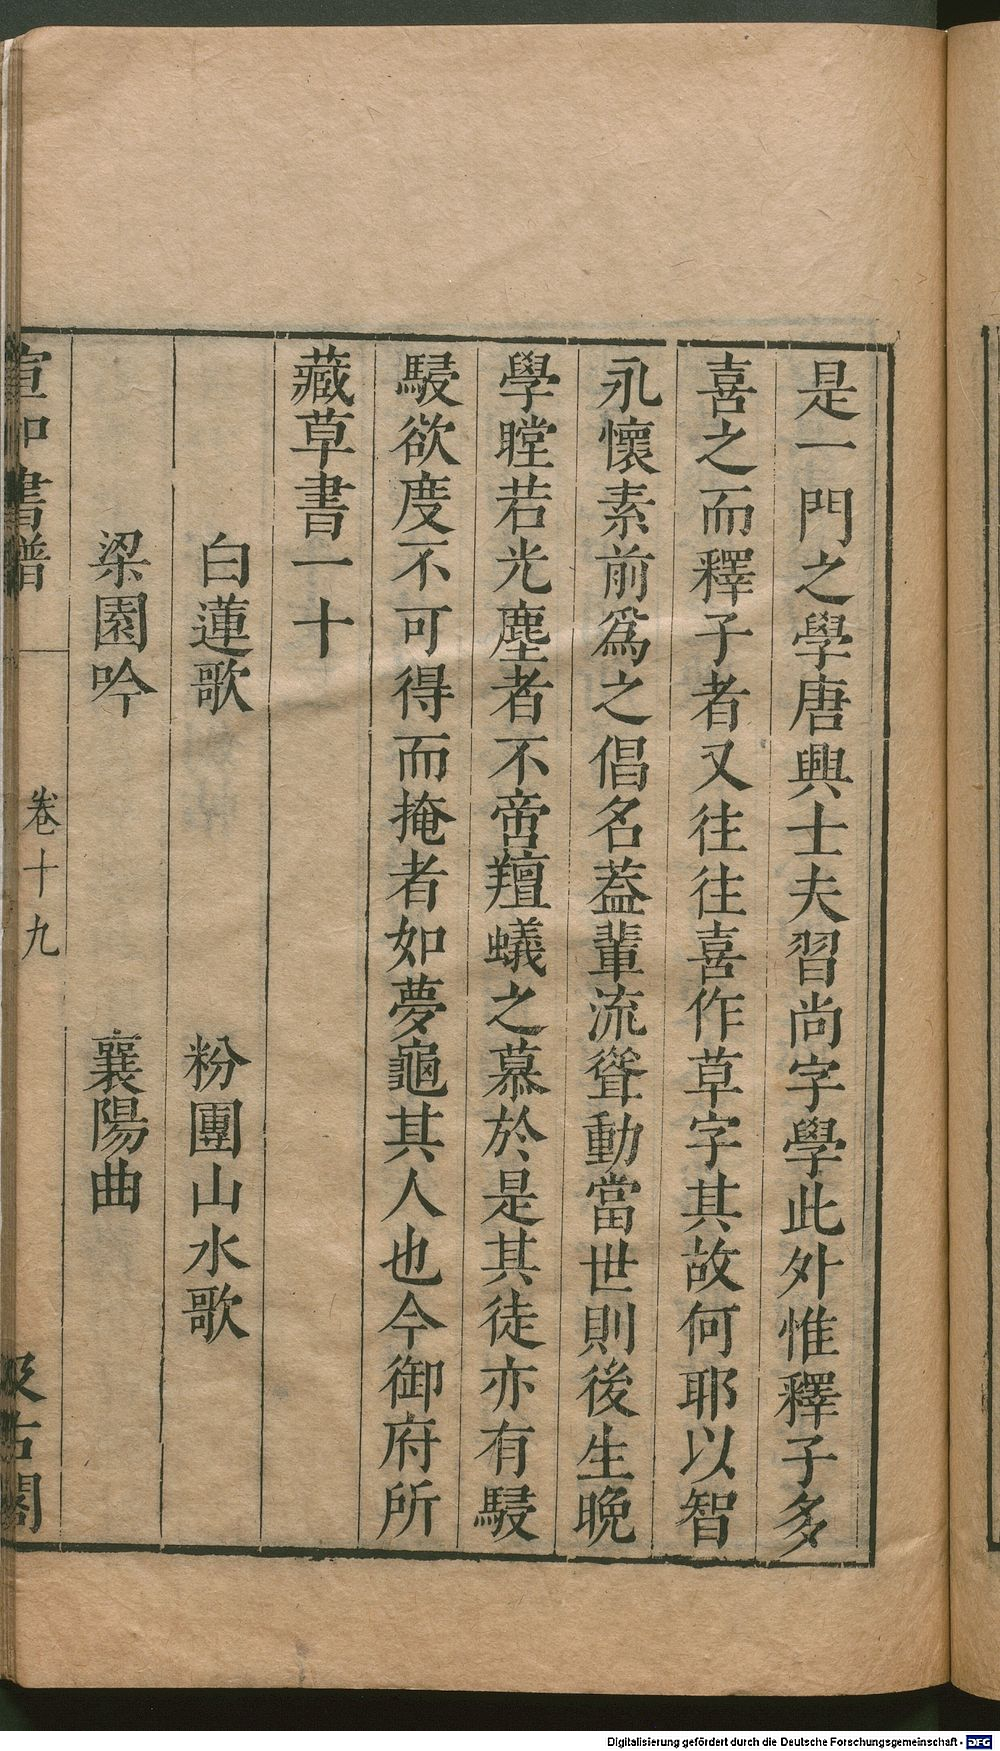 是一門之學唐興士夫習尚字學此外惟釋子多
喜之而釋子者又往往喜作草字其故何耶以智
永懷素前爲之倡名葢輩流聳動當世則後生晚
學瞠若光塵者不啻羶蟻之慕於是其徒亦有駸
駸欲度不可得而掩者如夢龜其人也今御府所
藏草書一十
白蓮歌 粉團山水歌
梁園吟 襄陽曲
宣和書譜 卷十九 汲古閣
Digitalisierung gefördert durch die Deutsche Forschungsgemeinschaft - DFG